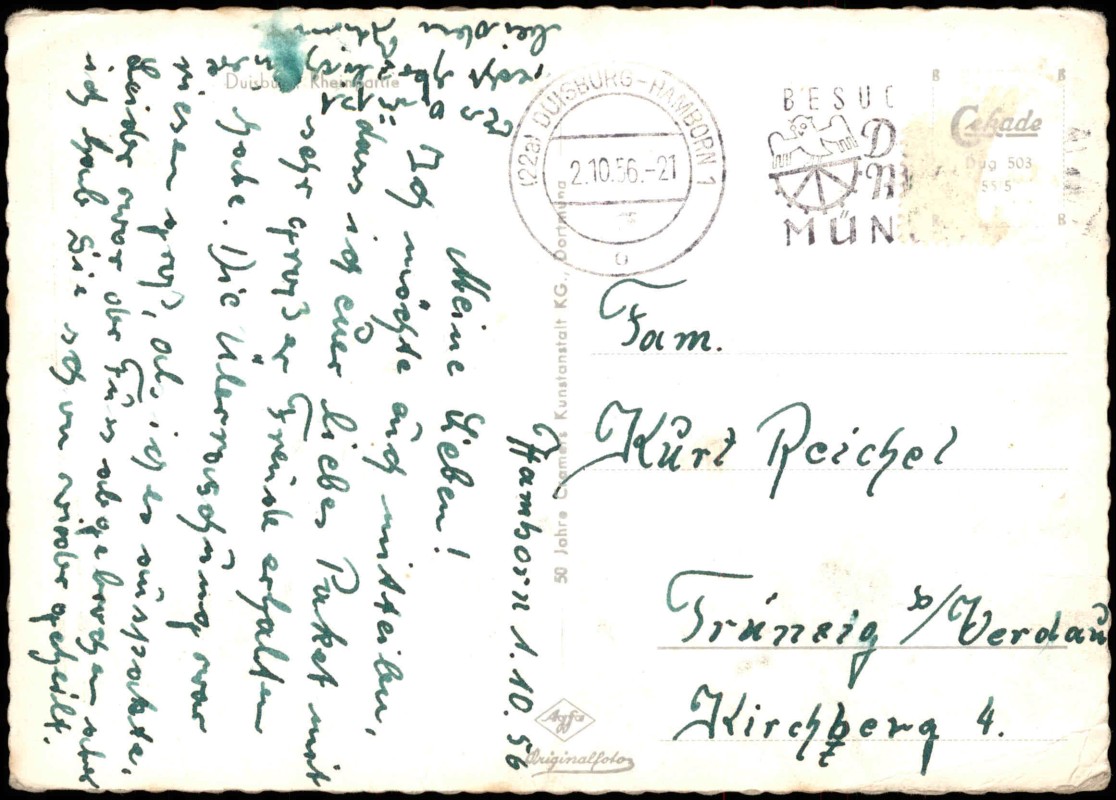 Duisburg, Rheinpartie
(22a) DUISBURG-HAMBORN 1
2.10.56.-21
o
BESUC
D
M
MÜN
B B
Cekade
Dug 503
55 5
B B
50 Jahre Cramers Kunstanstalt KG., Dortmund
Agfa
Originalfoto
Hamborn 1.10.56
Meine Lieben!
Ich möchte auch mitteilen,
dass ich euer liebes Paket mit
sehr großer Freude erhalten
habe. Die Überraschung war
riesen groß, als ich es auspackte,
leider war der Fuss abgebrochen aber
ich hab Sie schon wieder geheilt.
Fam.
Kurt Reichel
Trünzig /Werdau
Kirchberg 4.